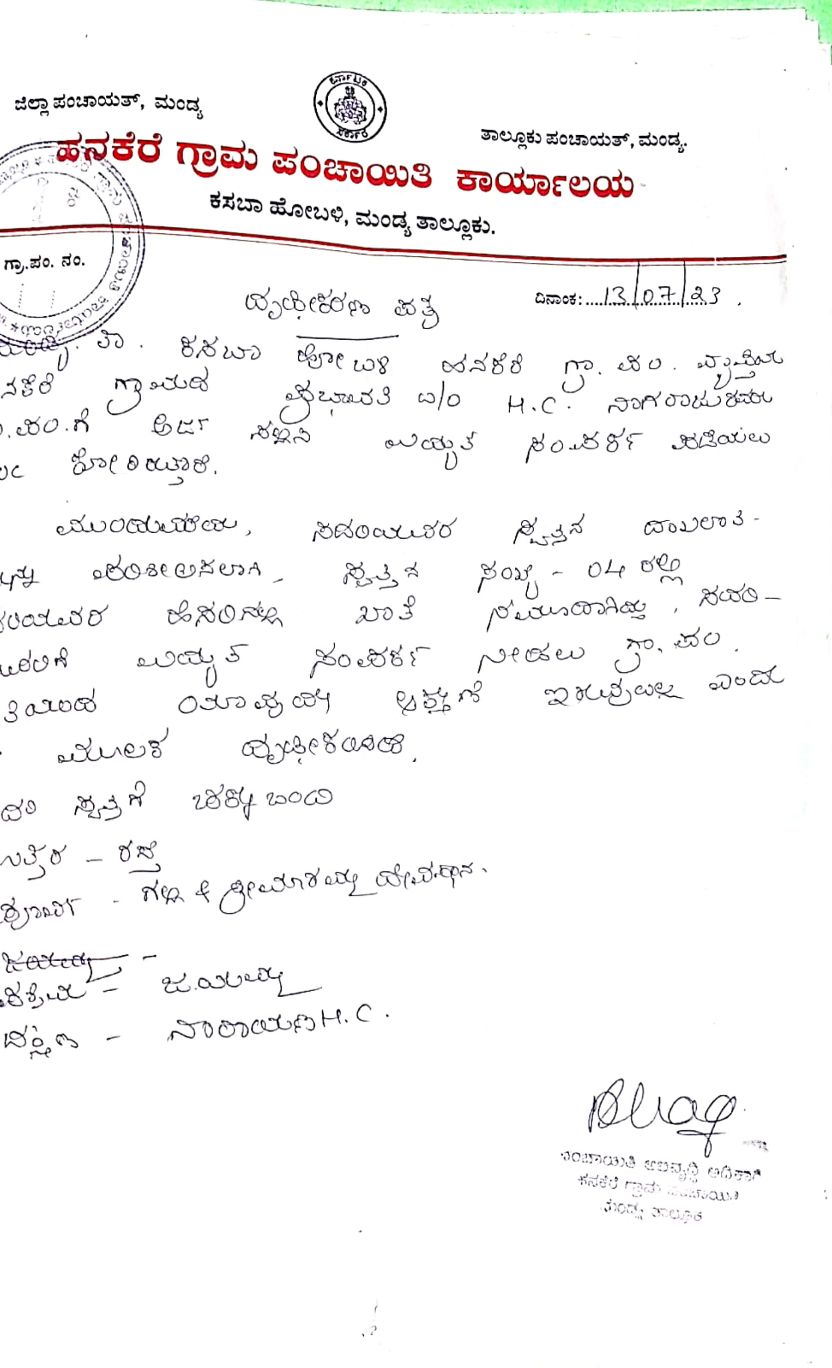 ಜಿಲ್ಲಾ ಪಂಚಾಯತ್, ಮಂಡ್ಯ
ಕರ್ನಾಟಕ ಸರ್ಕಾರ
ತಾಲ್ಲೂಕು ಪಂಚಾಯತ್, ಮಂಡ್ಯ.
ಹನಕೆರೆ ಗ್ರಾಮ ಪಂಚಾಯಿತಿ ಕಾರ್ಯಾಲಯ
ಕಸಬಾ ಹೋಬಳಿ, ಮಂಡ್ಯ ತಾಲ್ಲೂಕು.
ಗ್ರಾ.ಪಂ. ನಂ.
ದಿನಾಂಕ:....13/07/23.
ದೃಢೀಕರಣ ಪತ್ರ
ತಾ. ಕಸಬಾ ಹೋಬಳಿ ಹನಕೆರೆ ಗ್ರಾ. ಪಂ. ವ್ಯಾಪ್ತಿಯ
ನಕೆರೆ ಗ್ರಾಮದ ಪ್ರಭಾವತಿ H.C. ನಾಗರಾಜುರವರು
.ಪಂ.ಗೆ ಅರ್ಜಿ ಸಲ್ಲಿಸಿ ವಿದ್ಯುತ್ ಸಂಪರ್ಕ ಪಡೆಯಲು
ಕೋರಿರುತ್ತಾರೆ.
ಮುಂದುವರೆದು, ಸದರಿಯವರ ಸ್ವತ್ತಿನ ದಾಖಲಾತಿ-
ಪರಿಶೀಲಿಸಲಾಗಿ, ಸ್ವತ್ತಿನ ಸಂಖ್ಯೆ - 04 ರಲ್ಲಿ
ರಿಯವರ ಹೆಸರಿನಲ್ಲಿ ಖಾತೆ ನಮೂದಾಗಿದ್ದು, ಸದರಿ-
ವಿದ್ಯುತ್ ಸಂಪರ್ಕ ನೀಡಲು ಗ್ರಾ. ಪಂ.
ತಿಯಿಂದ ಯಾವುದೇ ಆಕ್ಷೇಪಣೆ ಇರುವುದಿಲ್ಲ ಎಂದು
ಮೂಲಕ ದೃಢೀಕರಿಸಿದೆ.
ದರಿ ಸ್ವತ್ತಿಗೆ ಚಕ್ಕುಬಂದಿ
ಉತ್ತರ - ರಸ್ತೆ
ಪೂರ್ವ - ಗಲ್ಲಿ & ಶ್ರೀಮಾರಮ್ಮ ದೇವಸ್ಥಾನ.
ಪಶ್ಚಿಮ - ಜಯಮ್ಮ
ದಕ್ಷಿಣ - ನಾರಾಯಣ H.C.
ಪಂಚಾಯಿತಿ ಅಭಿವೃದ್ಧಿ ಅಧಿಕಾರಿ
ಹನಕೆರೆ ಗ್ರಾಮ ಪಂಚಾಯಿತಿ
ಮಂಡ್ಯ ತಾಲ್ಲೂಕು